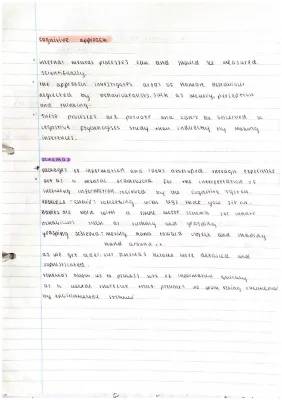 cognitive approach
internal mental processes can and should be measured
scientifically.
the approach investigates areas of human behaviour
neglected by behaviourists, such as memory, perception
and thinking.
these processes are private and can't be observed so
cognitive psychologists study them indirectly by making
inferences.
schemas
packages of information and ideas developed through experience
act as a mental framework for the interpretation of
incoming information received by the cognitive system.
chair: something with legs that you sit on.
babies are born with a simple motor schema for innate
behaviours such as sucking and grasping.
grasping schema: moving hand toward object and shaping
hand around it.
as we get older, our schemas become more detailed and
sophisticated.
schemas enable us to process lots of information quickly
as a mental shortcut that prevents us from being overwhelmed
by environmental stimuli